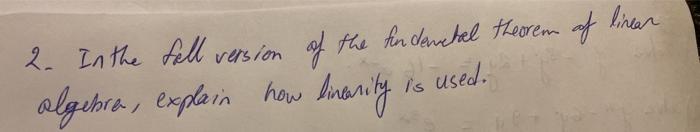 2. In the full version of the fundamental theorem of linear
algebra, explain how linearity is used.